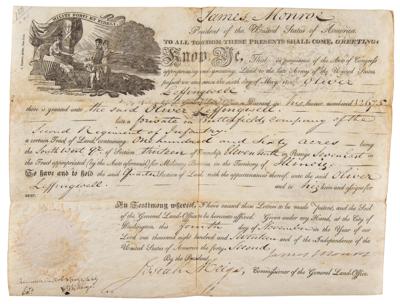 MILITARY BOUNTY
James Monroe
President of the United States of America
TO ALL TO WHOM THESE PRESENTS SHALL COME, GREETING:
Know Ye, That in pursuance of the Acts of Congress
appropriating and granting Land to the late Army of the United States
passed on and since the sixth day of May, 1812, Oliver
Leffingwell
having deposited in the General Land Office a Warrant in his favor numbered
there is granted unto the said Oliver Leffingwell
late a private in Butterfields company of the
Second Regiment of Infantry
a certain Tract of Land, containing One hundred and Sixty acres being
the South West Qr of Section thirteen of Township Eleventh in Range Seven West
the Tract appropriated (by the Acts aforesaid) for Military Bounties, in the Territory of Illinois
To have and to hold the said Quarter Section of Land, with the appurtenances thereof, unto the said Oliver
Leffingwell and to his heirs and assigns for
In Testimony whereof, I have caused these Letters to be made Patent, and the Seal
of the General Land Office to be hereunto affixed. Given under my Hand, at the City
of Washington, this fourth day of November in the Year of our
Lord one thousand eight hundred and Seventeen and of the Independence of the
United States of America the forty Second
James Monroe
By the President
Josiah Meigs, Commissioner of the General Land Office.